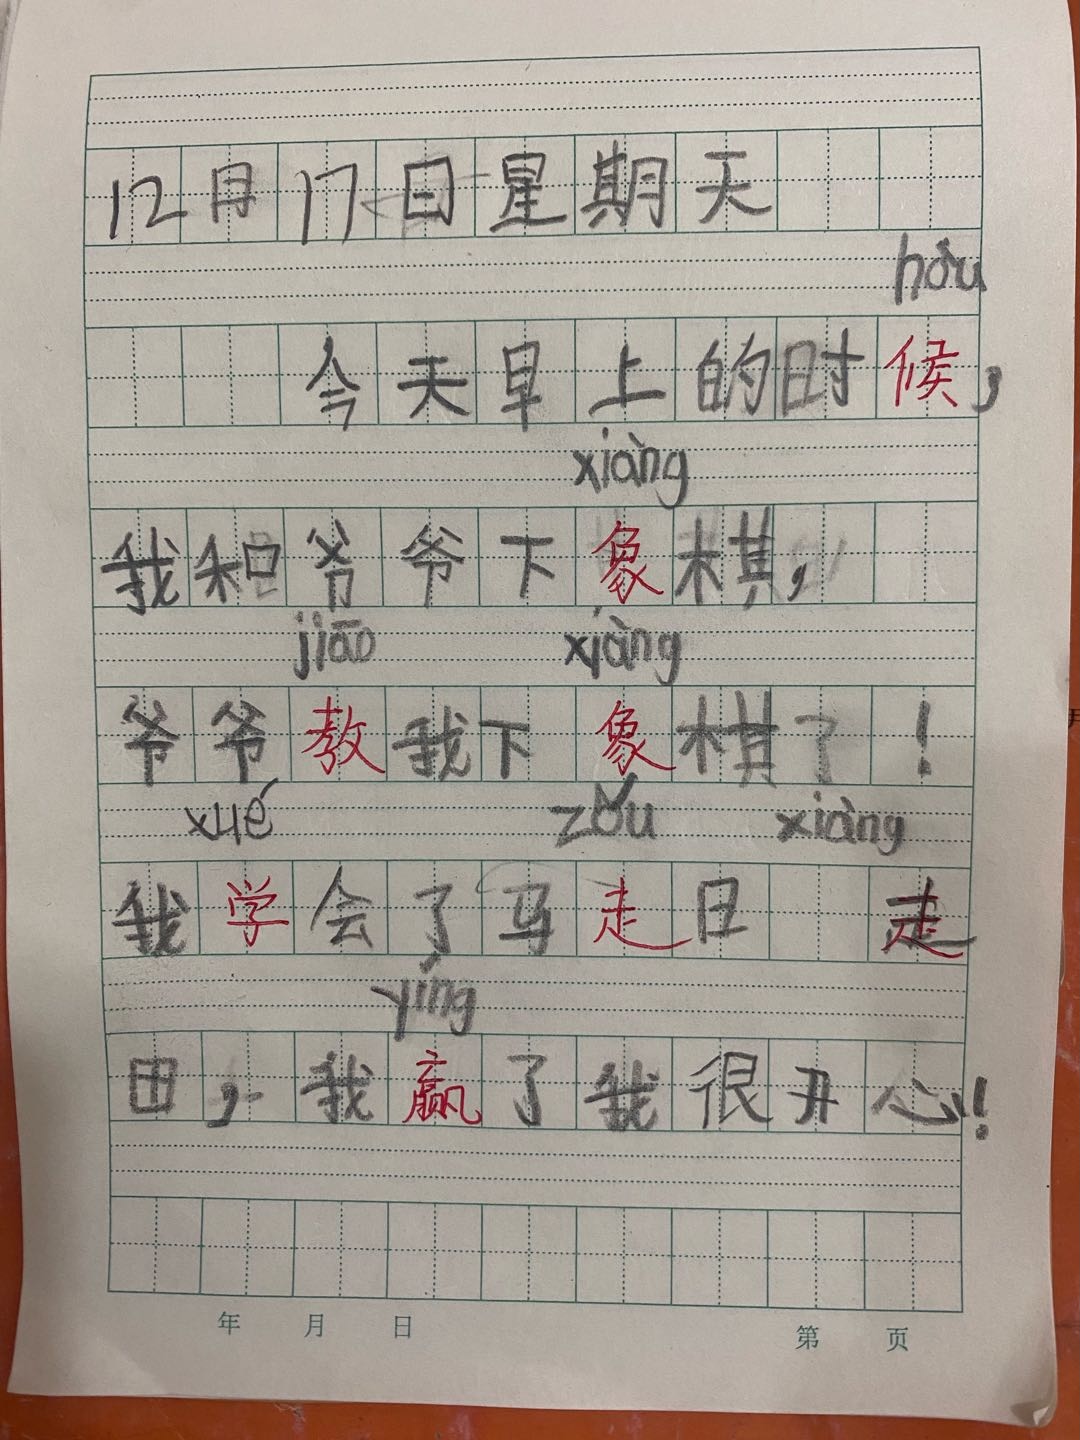 12月17日星期天
hòu
今天早上的时候，
xiàng
我和爷爷下象棋，
jiāo xiàng
爷爷教我下象棋了！
xué zǒu xiàng
我学会了马走日 走
yíng
田，我赢了我很开心！
年 月 日 第 页